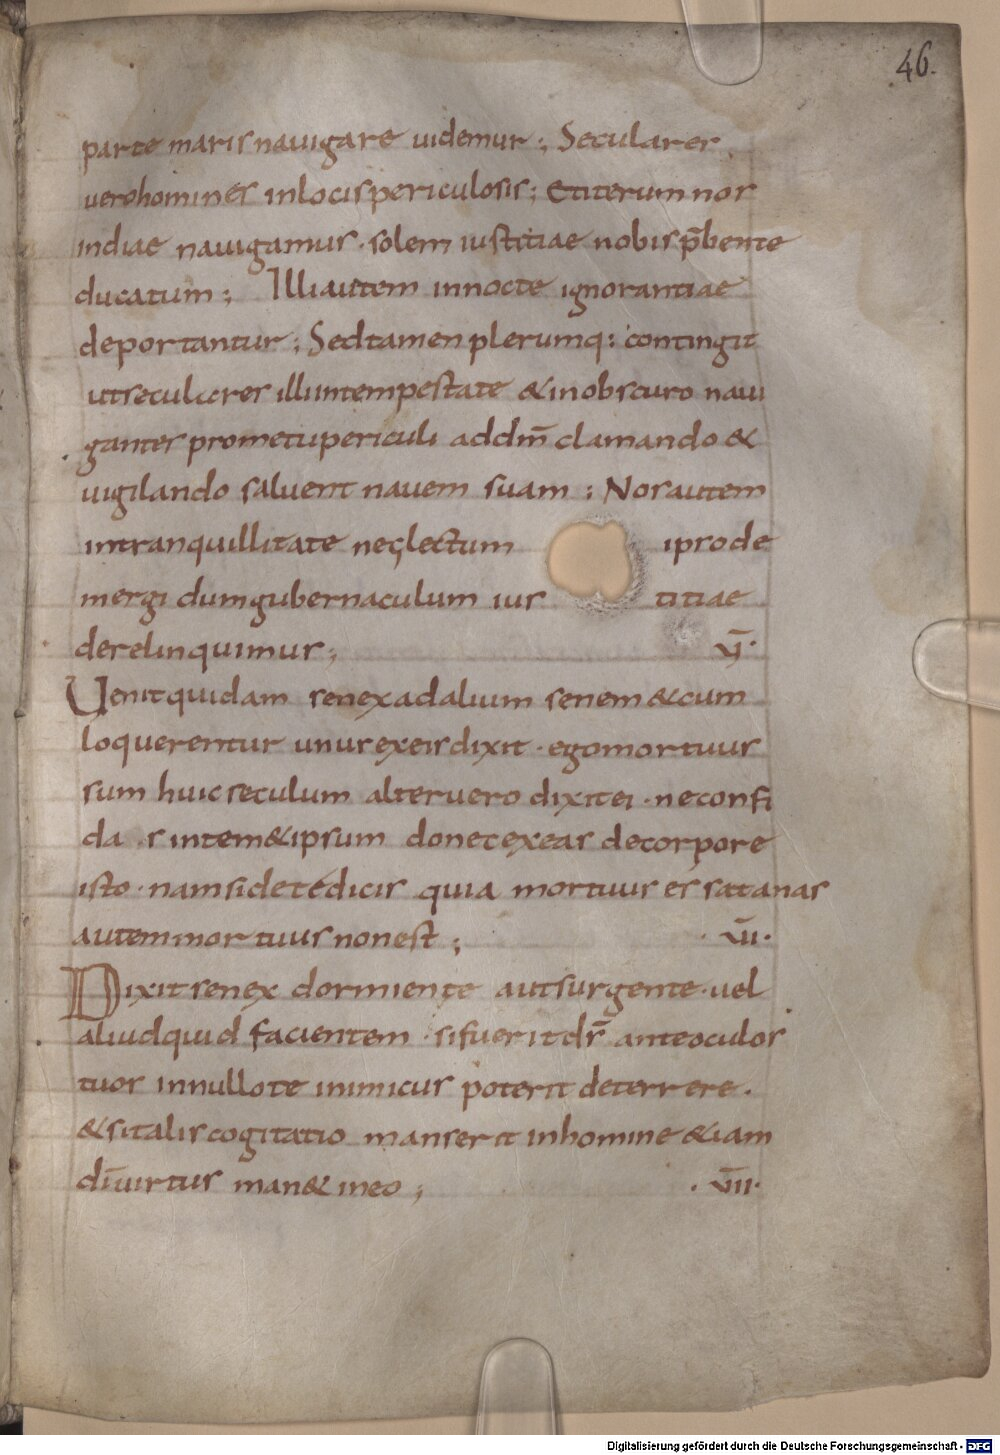 46.
parte maris nauigare uidemur ; Seculares
uero homines in locis periculosis ; Et iterum nos
in diae nauigamus · solem iustitiae nobis p̄bente
ducatum ; Illi autem in nocte ignorantiae
deportantur ; Sed tamen plerumq: contingit
ut seculares illi in tempestate & in obscuro naui
gantes pro metu periculi ad dm̄ clamando &
uigilando saluent nauem suam ; Nos autem
in tranquillitate neglectum iprode
mergi dum gubernaculum ius titiae
derelinquimus ; v̄i·
Uenit quidam senex ad alium senem & cum
loquerentur unus ex eis dixit · ego mortuus
sum huic seculum alter uero dixit ei · ne confi
da s in tem&ipsum donec exeas de corpore
isto · nam si de te dicis quia mortuus es satanas
autem mortuus non est ; · v̄ii·
Dixit senex dormiente aut surgente · uel
aliud quid facientem · si fuerit ds̄ ante oculos
tuos in nullo te inimicus poterit deterrere ·
& si talis cogitatio manserit in homine & iam
dī uirtus man& in eo ; · v̄iii·
Digitalisierung gefördert durch die Deutsche Forschungsgemeinschaft - DFG